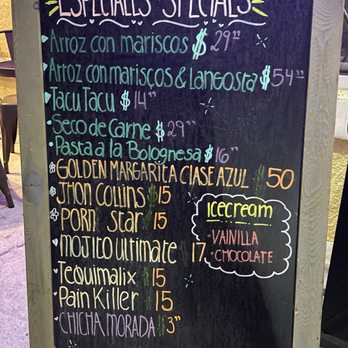 ESPECIALES SPECIALS
Arroz con mariscos $29""
Arroz con mariscos & Langosta $54""
Tacu Tacu $14""
Seco de Carne $29""
Pasta a la Bolognesa $16""
GOLDEN MARGARITA CLASE AZUL 50
JHON COLLINS 15
PORN STAR 15
MOJITO ULTIMATE 17
Tequimalix 15
Pain Killer 15
CHICHA MORADA 3""
ICECREAM
- VAINILLA
- CHOCOLATE